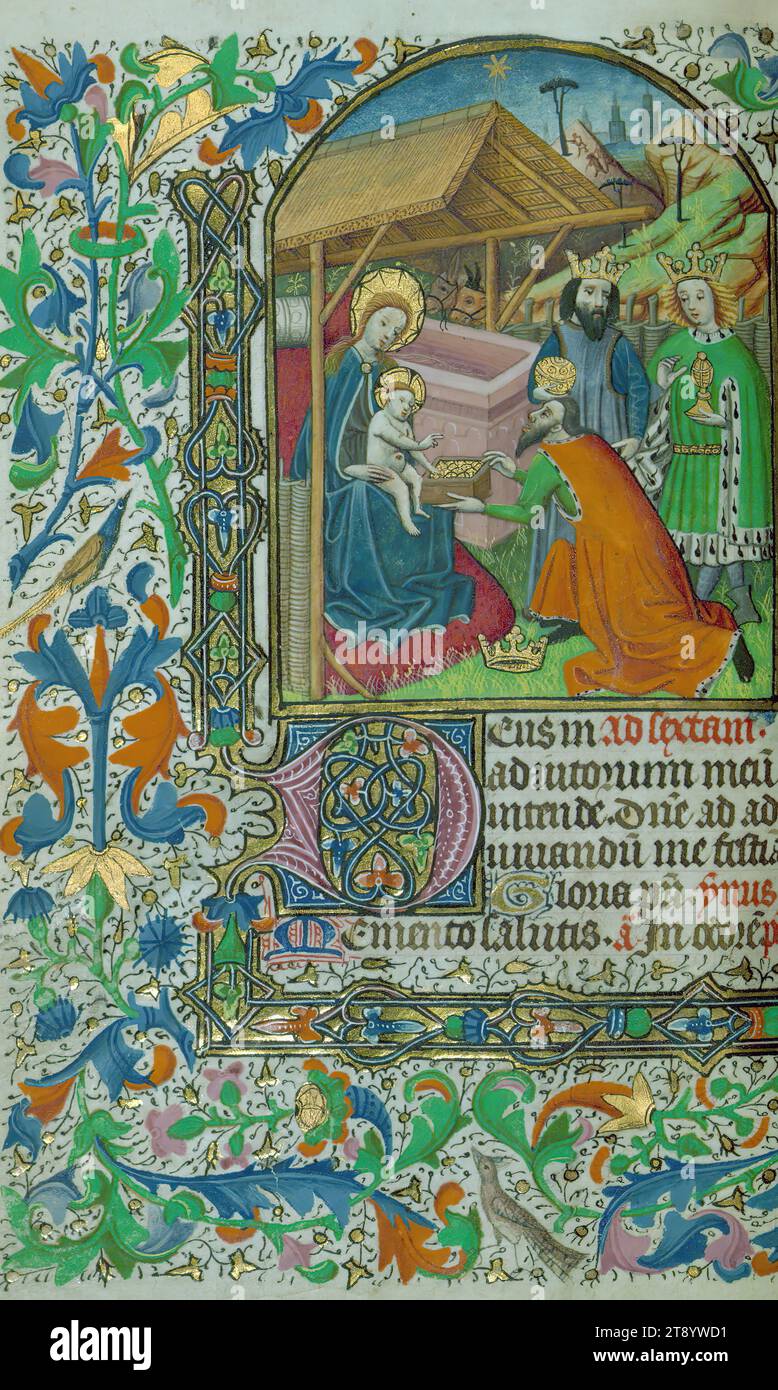 Deus in Ad sextam.
adiutorium meū
intende. Dn̄e ad ad
iuuandū me festia
Gloria pr̄i. ymus
Memento salutis. ā In
alamy
Image ID: 2T8YWD1
www.alamy.com